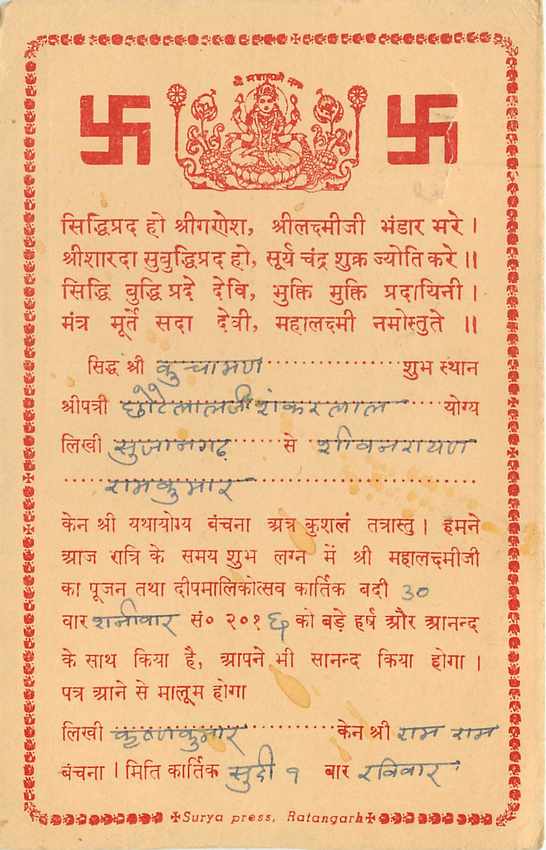 श्री महालक्ष्मी नमः
सिद्धिप्रद हो श्रीगणेश, श्रीलक्ष्मीजी भंडार भरे ।
श्रीशारदा सुबुद्धिप्रद हो, सूर्य चंद्र शुक्र ज्योति करे ॥
सिद्धि बुद्धि प्रदे देवि, भुक्ति मुक्ति प्रदायिनी ।
मंत्र मूर्ते सदा देवी, महालक्ष्मी नमोस्तुते ॥
सिद्ध श्री कुचामण शुभ स्थान
श्रीपत्री ११ छोटेलालजी शंकरलाल योग्य
लिखी सुजानगढ़ से शीवनरायण
रामकुमार
केन श्री यथायोग्य बंचना अत्र कुशलं तत्रास्तु । हमने
आज रात्रि के समय शुभ लग्न में श्री महालक्ष्मीजी
का पूजन तथा दीपमालिकोत्सव कार्तिक बदी 30
वार शनीवार सं० २०१६ को बड़े हर्ष और आनन्द
के साथ किया है, आपने भी सानन्द किया होगा ।
पत्र आने से मालूम होगा
लिखी कृष्णकुमार केन श्री राम राम
बंचना । मिति कार्तिक सुदी १ बार रविवार
Surya press, Ratangarh